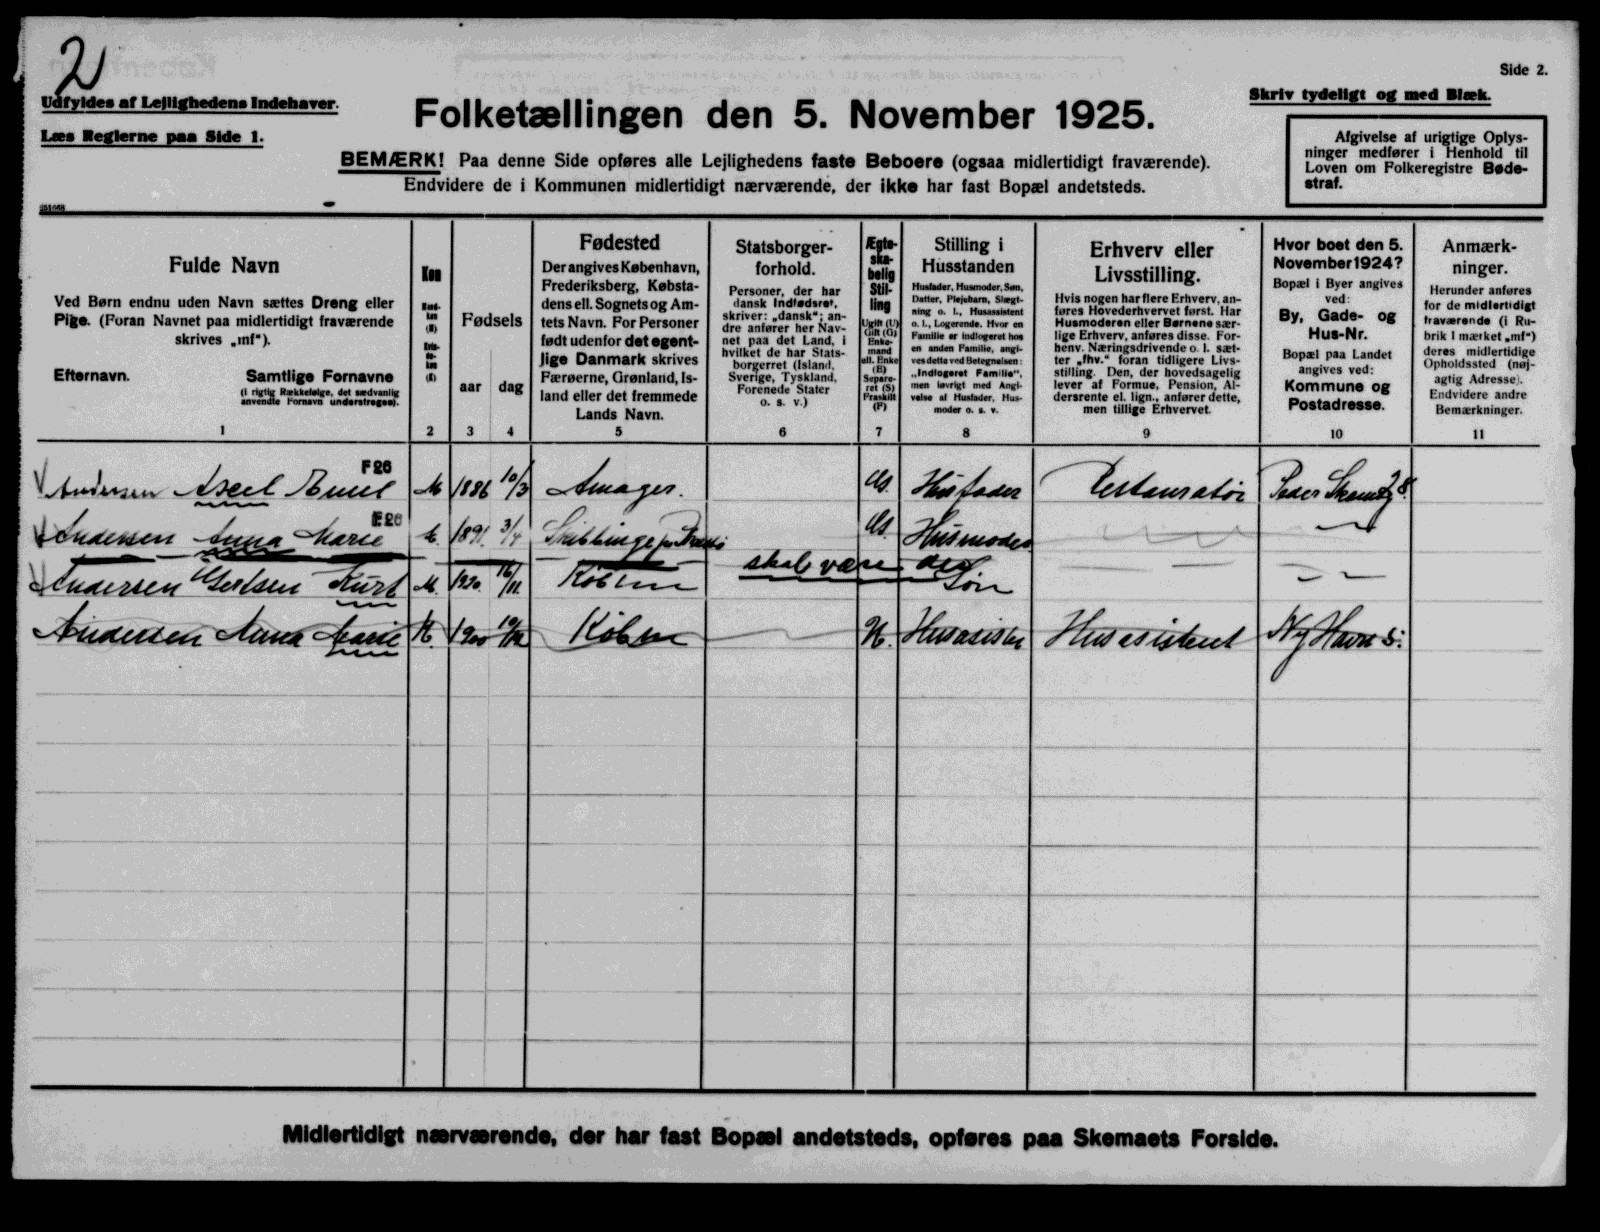 2
Side 2.
Udfyldes af Lejlighedens Indehaver.
Læs Reglerne paa Side 1.
Folketællingen den 5. November 1925.
Skriv tydeligt og med Blæk.
BEMÆRK! Paa denne Side opføres alle Lejlighedens faste Beboere (ogsaa midlertidigt fraværende).
Endvidere de i Kommunen midlertidigt nærværende, der ikke har fast Bopæl andetsteds.
Afgivelse af urigtige Oplys-
ninger medfører i Henhold til
Loven om Folkeregistre Bøde-
straf.
Fulde Navn
Ved Børn endnu uden Navn sættes Dreng eller
Pige. (Foran Navnet paa midlertidigt fraværende
skrives „mf“).
Efternavn.
Samtlige Fornavne
(i rigtig Rækkefølge, det sædvanlig
anvendte Fornavn understreges).
1
Køn
Mand-
køn
(M)
Kvin-
de-
køn
(K)
2
Fødsels
aar dag
3 4
Fødested
Der angives København,
Frederiksberg, Købsta-
dens ell. Sognets og Am-
tets Navn. For Personer
født udenfor det egent-
lige Danmark skrives
Færøerne, Grønland, Is-
land eller det fremmede
Lands Navn.
5
Statsborger-
forhold.
Personer, der har
dansk Indfødsret,
skriver: „dansk“; an-
dre anfører her Nav-
net paa det Land, i
hvilket de har Stats-
borgerret (Island,
Sverige, Tyskland,
Forenede Stater
o. s. v.)
6
Ægte-
ska-
belig
Stil-
ling
Ugift (U)
Gift (G)
Enke-
mand
ell. Enke
(E)
Separe-
ret (S)
Fraskilt
(F)
7
Stilling i
Husstanden
Husfader, Husmoder, Søn,
Datter, Plejebarn, Slægt-
ning o. l., Husassistent
o. l., Logerende. Hvor en
Familie er indlogeret hos
en anden Familie, angi-
ves dette ved Betegnelsen:
„Indlogeret Familie“,
men iøvrigt med Angi-
velse af Husfader, Hus-
moder o. s. v.
8
Erhverv eller
Livsstilling.
Hvis nogen har flere Erhverv, an-
føres Hovederhvervet først. Har
Husmoderen eller Børnene sær-
lige Erhverv, anføres disse. For-
henv. Næringsdrivende o. l. sæt-
ter „fhv.“ foran tidligere Livs-
stilling. Den, der hovedsagelig
lever af Formue, Pension, Al-
dersrente el. lign., anfører dette,
men tillige Erhvervet.
9
Hvor boet den 5.
November 1924?
Bopæl i Byer angives
ved:
By, Gade- og
Hus-Nr.
Bopæl paa Landet
angives ved:
Kommune og
Postadresse.
10
Anmærk-
ninger.
Herunder anføres
for de midlertidigt
fraværende (i Ru-
brik 1 mærket „mf“)
deres midlertidige
Opholdssted (nøj-
agtig Adresse).
Endvidere andre
Bemærkninger.
11
F26
Andersen Axel Emil M 1886 10/3 Amager. Husfader Restauratør Peder Skramsg 28.
F26
Andersen Anna Marie K. 1891. 3/4 Skibbinge Husmoder
skal være
Andersen Kurt M. 1920. 16/11. Købmn Søn
Andersen Anna Marie K. 1900 Købmn U. Husasist Husasistent Ny Havn 5.
Midlertidigt nærværende, der har fast Bopæl andetsteds, opføres paa Skemaets Forside.